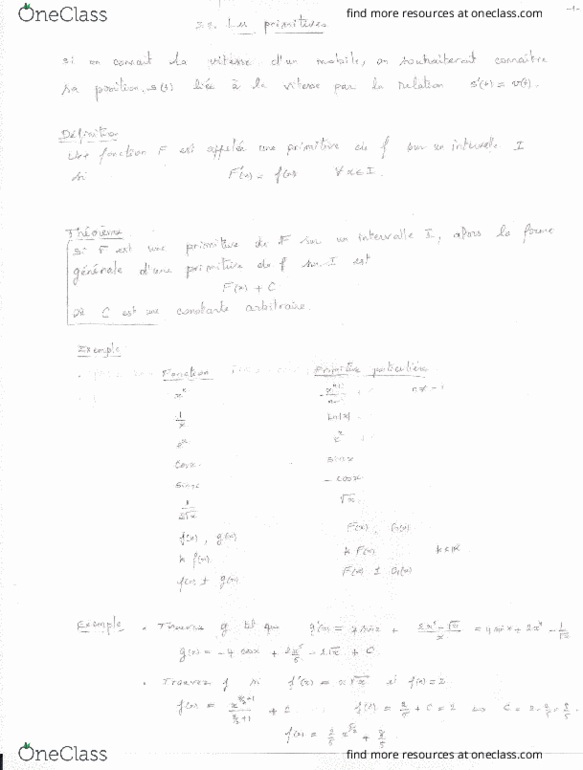 OneClass
find more resources at oneclass.com
Les primitives
si on connait la vitesse d'un mobile, on souhaiterait connaître
sa position s(t) liée à la vitesse par la relation s'(t) = v(t).
Définition
Une fonction F est appelée une primitive de f sur un intervalle I
si F'(x) = f(x) ∀x∈I.
Théorème
Si F est une primitive de F sur un intervalle I, alors la forme
générale d'une primitive de f sur I est
F(x) + C
où C est une constante arbitraire.
Exemple
Fonction Primitive particulière
xⁿ xⁿ⁺¹/n+1 n≠-1
1/x ln|x|
eˣ eˣ
cosx sinx
sinx - cosx
1/2√x √x
f(x), g(x) F(x), G(x)
k f(x) k F(x) k∈ℝ
f(x) ± g(x) F(x) ± G(x)
Exemple . Trouver g tel que g'(x) = 4 sinx + 2x⁵-√x/x = 4 sinx + 2x⁴ - 1/√x
g(x) = -4 cosx + 2x⁵/5 - 2√x + C
. Trouvez f si f'(x) = x√x si f(1)=2
OneClass
find more resources at oneclass.com